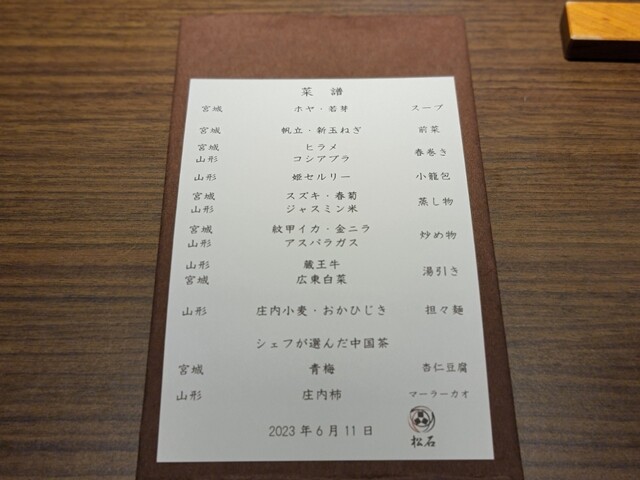 菜譜
宮城 ホヤ・若芽 スープ
宮城 帆立・新玉ねぎ 前菜
宮城 ヒラメ 春巻き
山形 コシアブラ
山形 姫セルリー 小籠包
宮城 スズキ・春菊 蒸し物
山形 ジャスミン米
宮城 紋甲イカ・金ニラ 炒め物
山形 アスパラガス
山形 蔵王牛 湯引き
宮城 広東白菜
山形 庄内小麦・おかひじき 担々麺
シェフが選んだ中国茶
宮城 青梅 杏仁豆腐
山形 庄内柿 マーラーカオ
2023年6月11日 松石